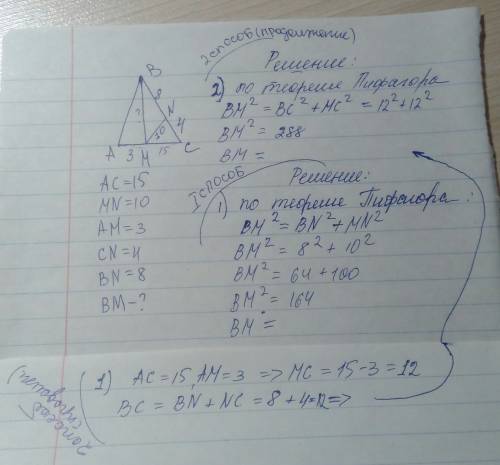 2 способ (продолжение)
Решение:
2) по теореме Пифагора
BM² = BC² + MC² = 12² + 12²
BM² = 288
BM =
B
8
?
N
10
4
A 3 M 15 C
AC = 15
MN = 10
AM = 3
CN = 4
BN = 8
BM - ?
I способ
Решение:
1) по теореме Пифагора:
BM² = BN² + MN²
BM² = 8² + 10²
BM² = 64 + 100
BM² = 164
BM =
2 способ
1) AC = 15, AM = 3 => MC = 15 - 3 = 12
BC = BN + NC = 8 + 4 = 12 =>